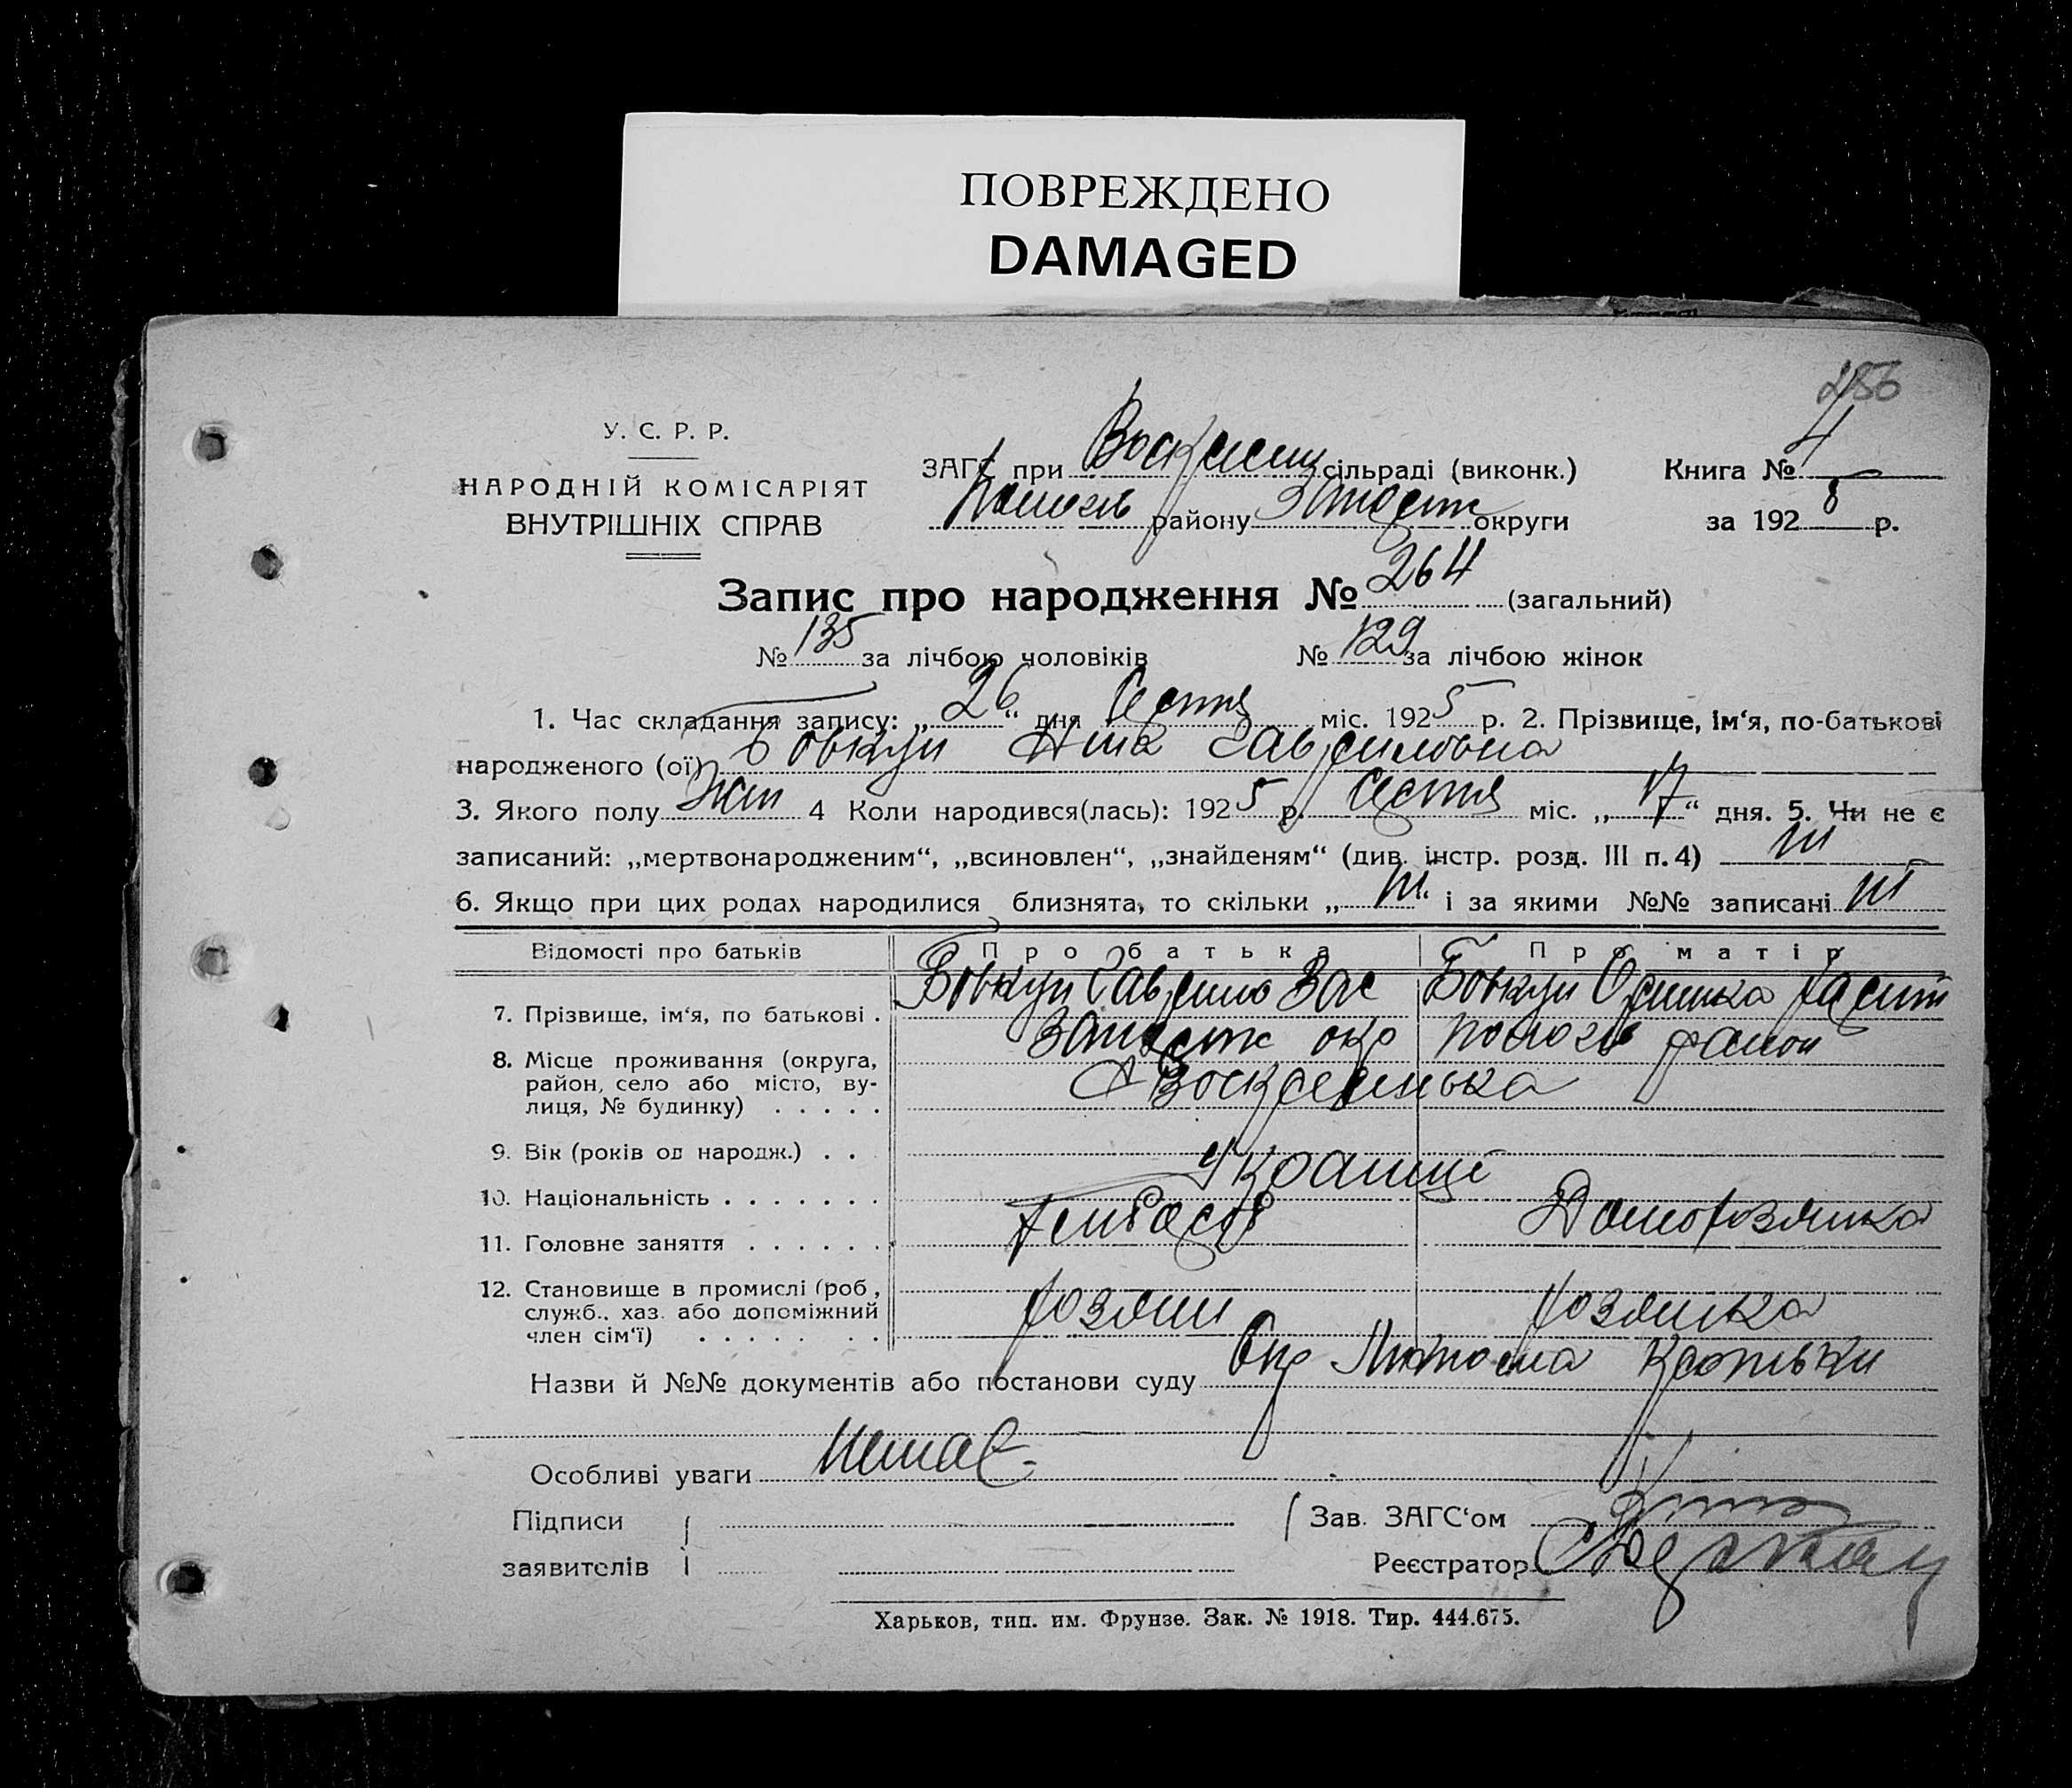 ПОВРЕЖДЕНО
DAMAGED
256
У. С. Р. Р.
НАРОДНІЙ КОМІСАРІЯТ
ВНУТРІШНІХ СПРАВ
ЗАГС при Воскресен сільраді (виконк.)
району округи
Книга № 4
за 1925 р.
Запис про народження № 264 (загальний)
№ 135 за лічбою чоловіків № 129 за лічбою жінок
1. Час складання запису: „26“ дня міс. 1925 р. 2. Прізвище, ім‘я, по-батькові
народженого (ої) Бовкун Гавриловна
3. Якого полу жін 4 Коли народився(лась): 1925 р. міс. „17“ дня. 5. Чи не є
записаний: „мертвонародженим“, „всиновлен“, „знайденям“ (див. інстр. розд. III п. 4) ні
6. Якщо при цих родах народилися близнята, то скільки „ні“ і за якими №№ записані ні
Відомості про батьків Про батька Про матір
7. Прізвище, ім‘я, по батькові . Бовкун Гаврило Вас Бовкун
8. Місце проживання (округа, район, село або місто, вулиця, № будинку) . . . . . окр район
Воскресенька
9. Вік (років од народж.) . .
10. Національність . . . . . . . Україці
11. Головне заняття . . . . . . Хлібороб Домохозяйка
12. Становище в промислі (роб, служб., хаз. або допоміжний член сім‘ї) . . . . . . . Хозяин Хозяйка
Назви й №№ документів або постанови суду
Особливі уваги Немає
Підписи
заявителів
Зав. ЗАГС‘ом
Реєстратор
Харьков, тип. им. Фрунзе. Зак. № 1918. Тир. 444.675.